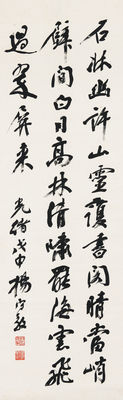 石牀幽許山靈護書閣晴當峭
壁間白日高林清嘯罷海雲飛
過翠屏来
光緒戊申楊守敬